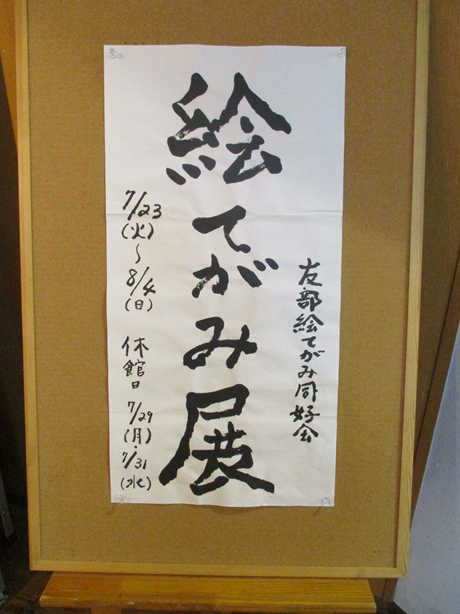 友部絵てがみ同好会
絵てがみ展
7/23(火)～8/4(日)
休館日 7/29(月)・7/31(水)